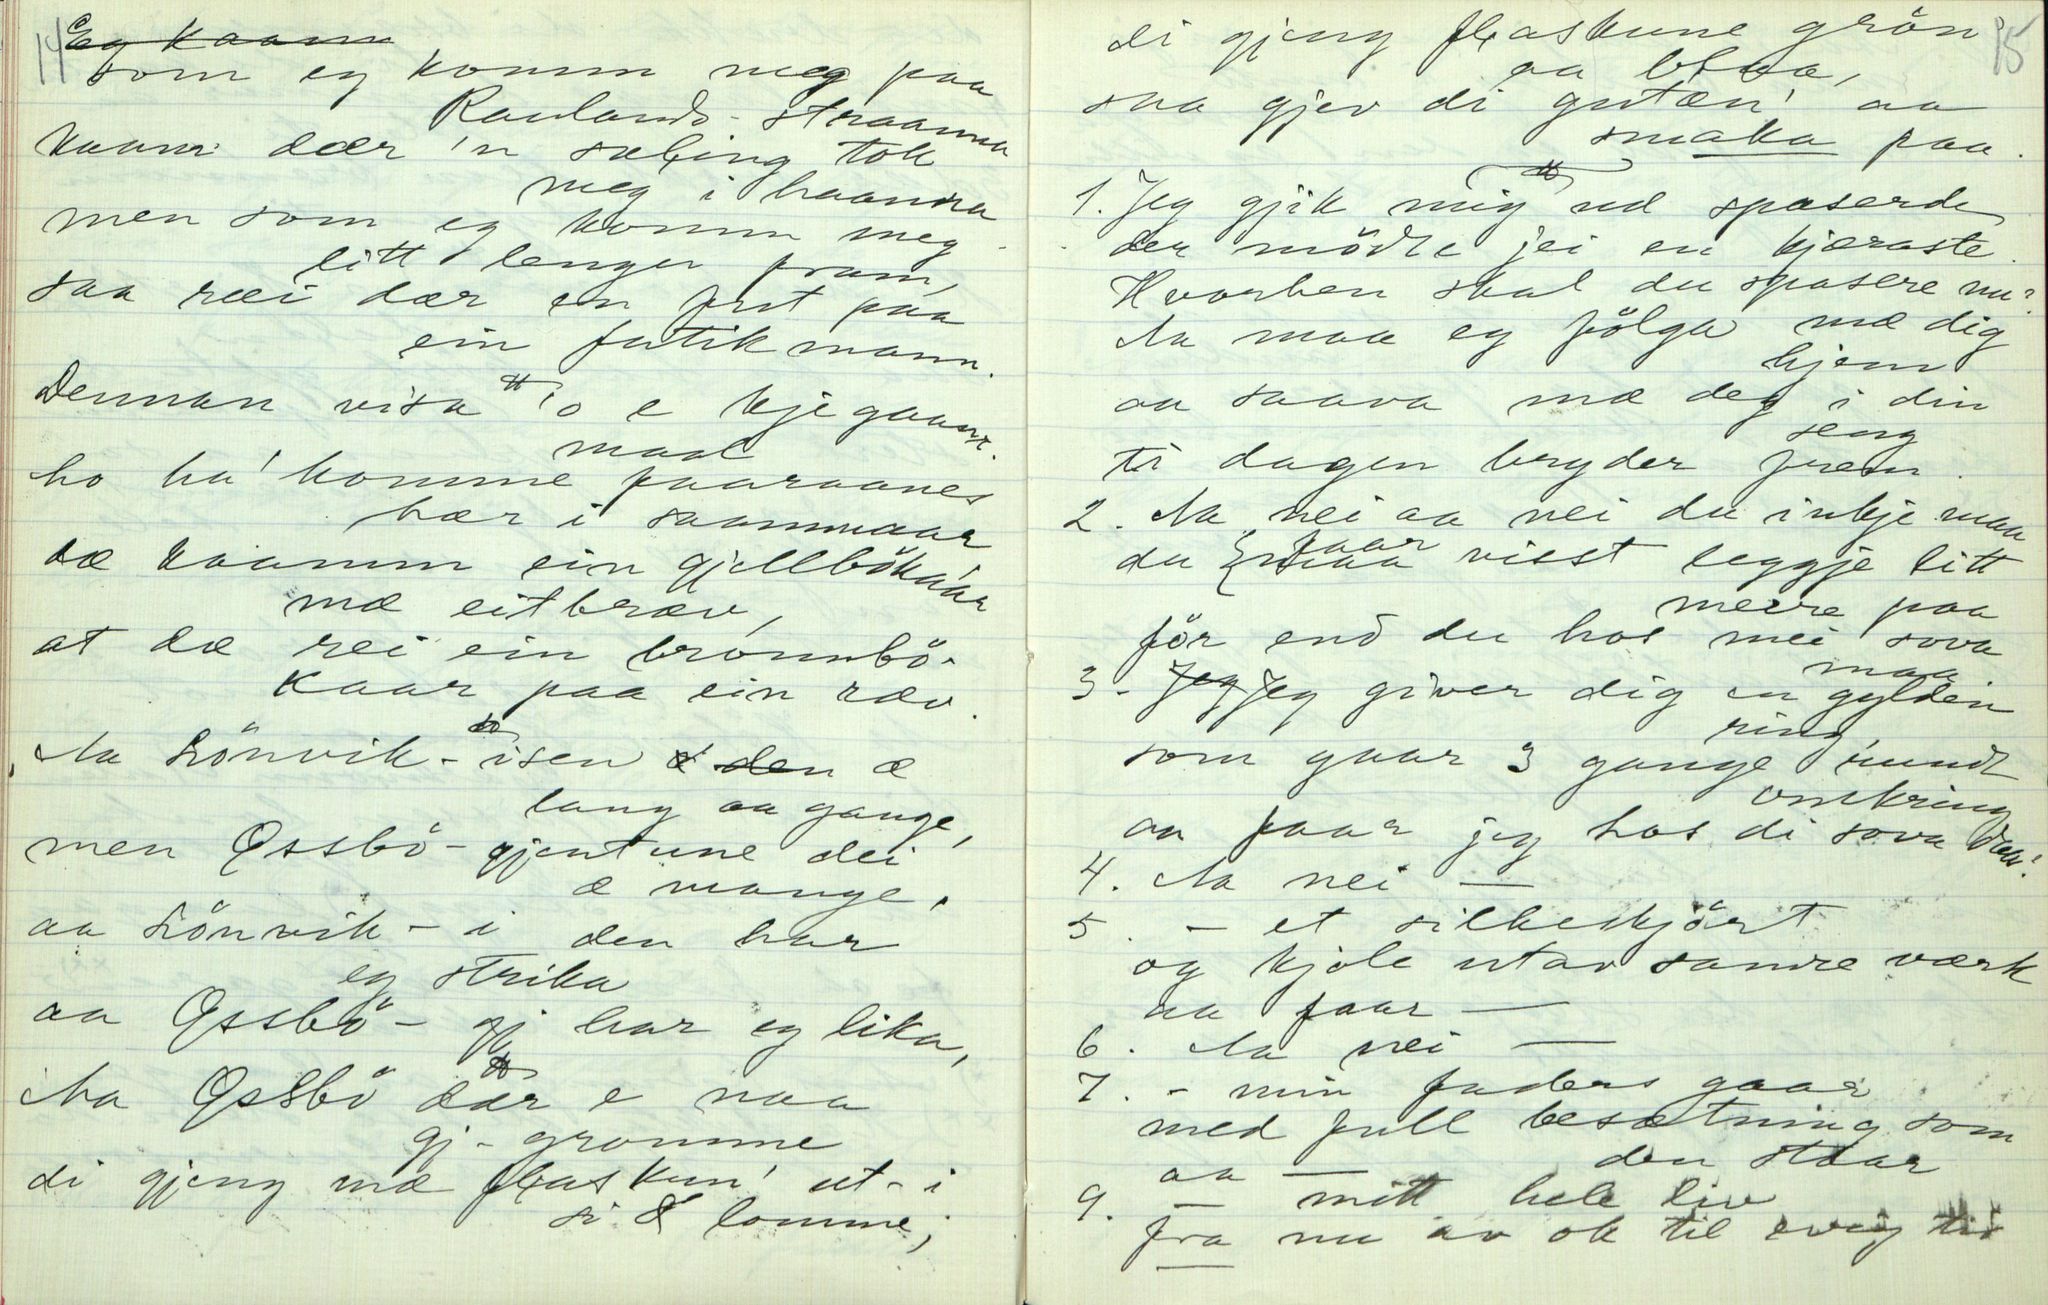 14
Eg kaamm
som eg komm meg paa
Raulands-straanna
kaam dær 'n sæling tok
meg i haanna
men som eg komm meg
litt lenger fram,
saa rei dær en fut paa
ein fatikmann.
Dennan visa
o e kje gaam.
maal
ho ha' komme paaraanes
hær i saammaar
dæ kaamm ein gjellbökaar
mæ eit bræv,
at dæ rei ein bronnbö-
kaar paa ein ræv.
Aa Lönvik-isen æ den æ
lang aa gange,
men Ossbö-gjentune dei
æ mange,
aa Lönvik-i den har
eg strika
aa Ossbö-gj har eg lika,
Aa Ossbö dær e naa
gj-gromme
di gjeng mæ flaskun' ut-i
si lomme,
15
di gjeng flaskune grön
aa blaa,
saa gjev di gutæn' aa
smaka paa.
1. Jeg gjik mig ud spaserde
der mödte jei en kjæraste.
Hvorhen skal du spasere nu?
Aa maa eg fölga mæ dig
hjem
aa saava mæ deg i din
seng
til dagen bryder frem.
2. Aa nei aa nei du inkje maa
du faar
maa visst leggje litt
meire paa
för end du hos mei sova
maa
3. Jeg Jeg giver dig en gylden
ring
som gaar 3 gange rundt
omkring
aa faar jeg hos di sova daa?
4. Aa nei —
5. – et silkeskjört
og kjole utav samre værk
aa faar —
6. Aa nei —
7. – min faders gaar
med full besætning som
den staar
aa —
9. — mitt hele liv
fra nu av ok til evig tid